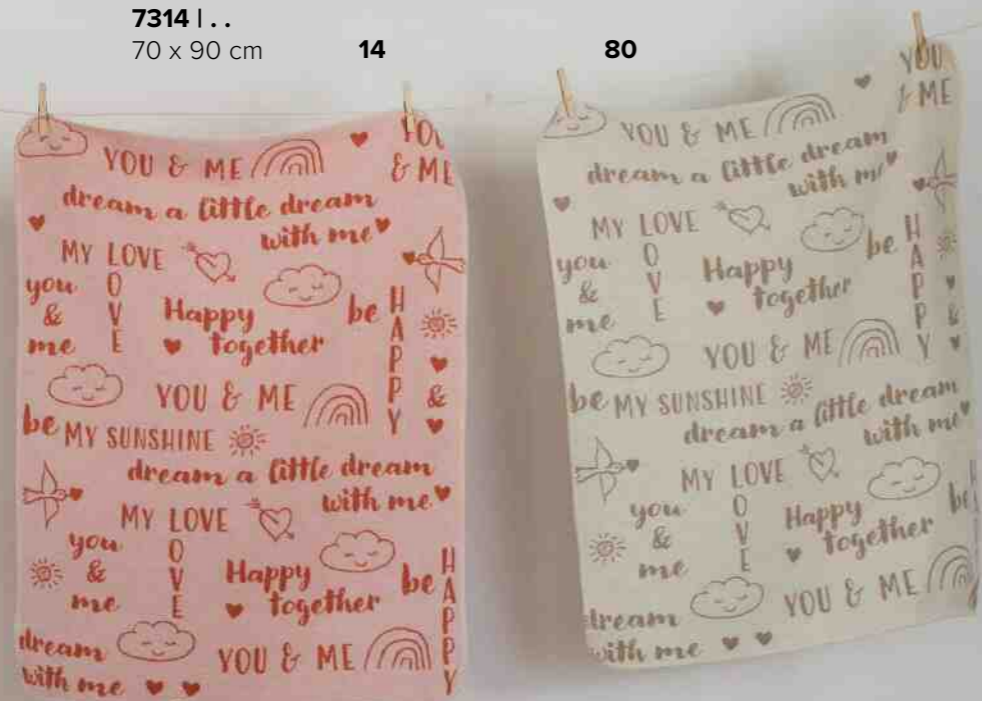 7314 | . .
70 x 90 cm
14
80
YOU & ME
YOU
& ME
dream a little dream
with me
MY LOVE
you
&
me
O
V
E
Happy
together
be HAPPY
&
YOU & ME
be MY SUNSHINE
dream a little dream
with me
MY LOVE
you
&
me
O
V
E
Happy
together
be HAPPY
dream
with me
YOU & ME
YOU & ME
YOU
& ME
dream a little dream
with me
MY LOVE
you
&
me
O
V
E
Happy
together
be HAPPY
&
YOU & ME
be MY SUNSHINE
dream a little dream
with me
MY LOVE
you
&
me
O
V
E
Happy
together
be
YOU & ME
dream
with me